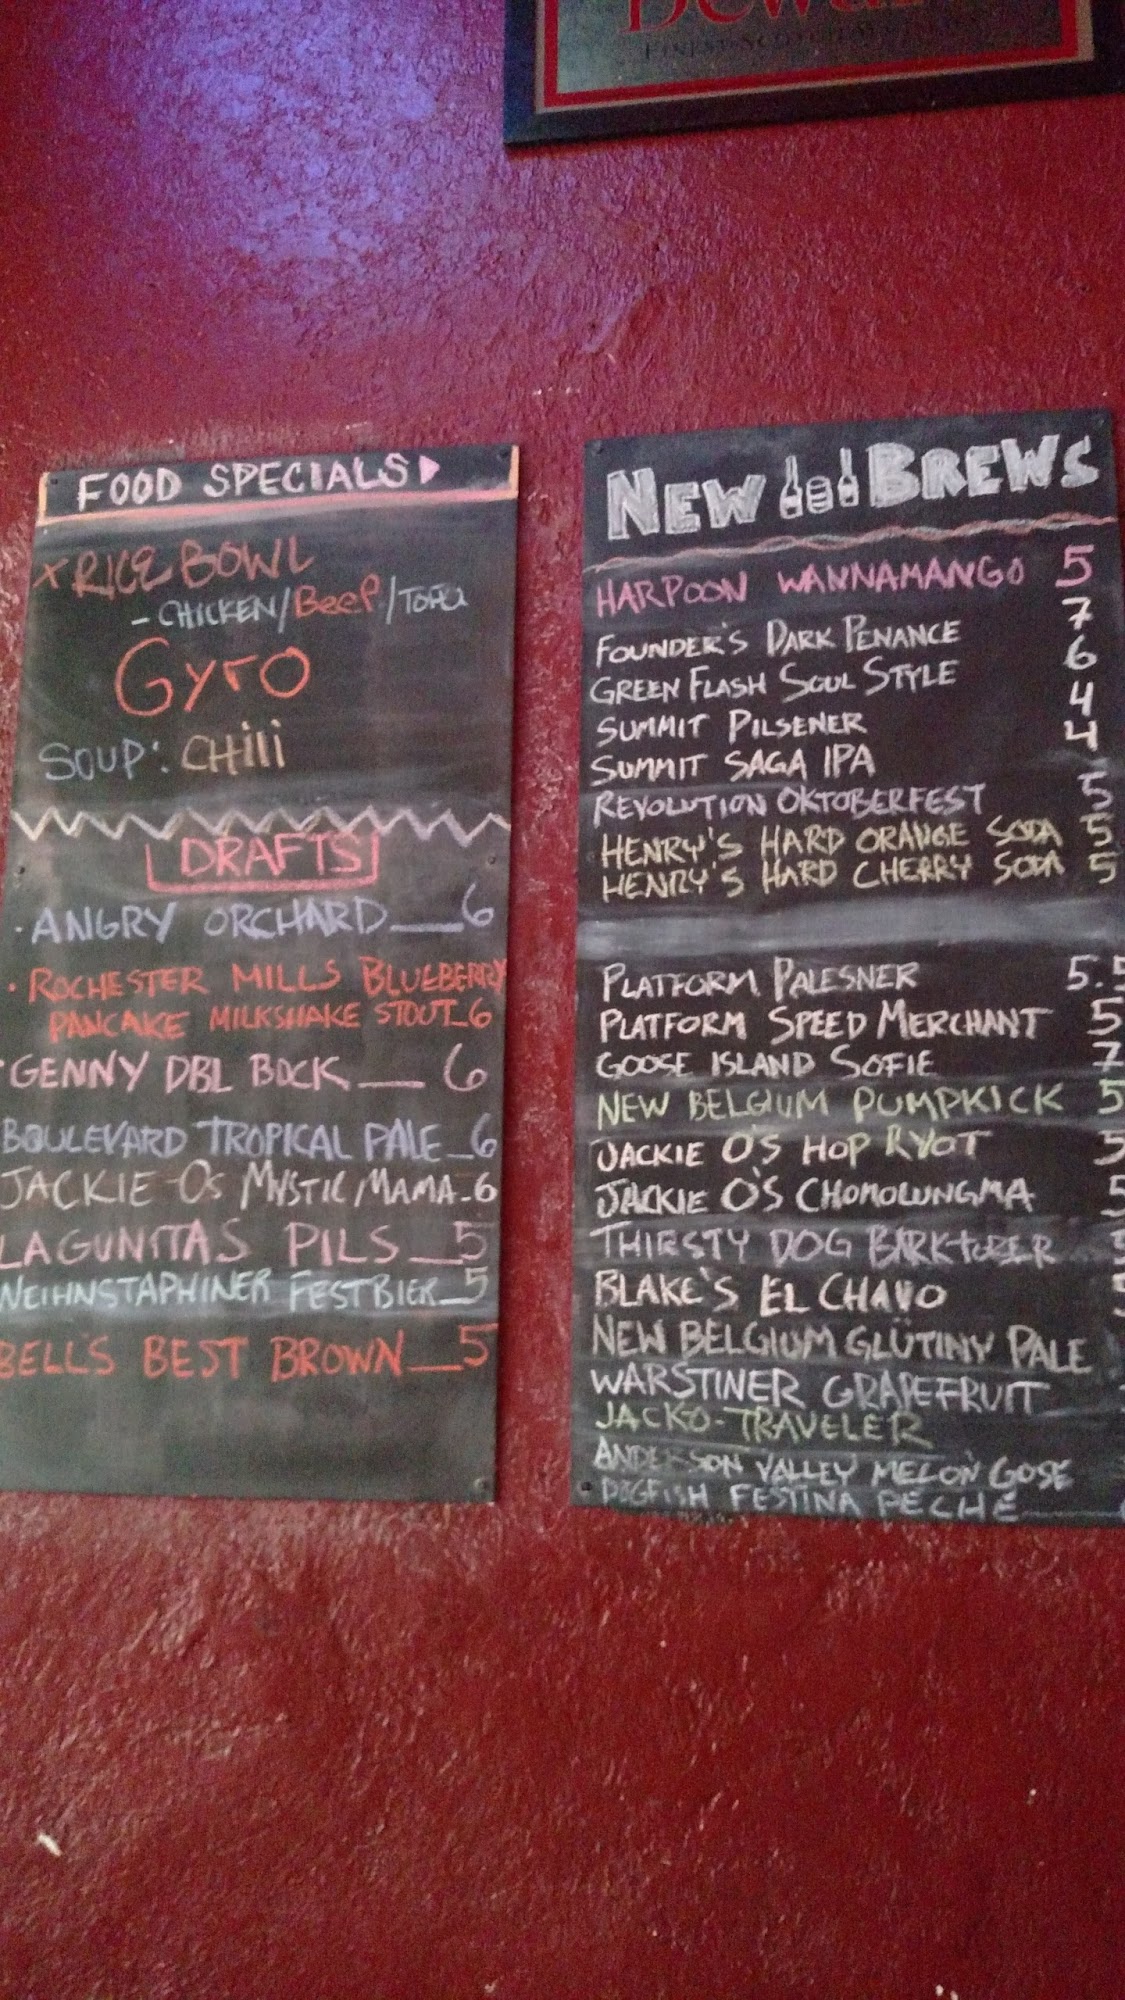 FINEST SCOTCH
FOOD SPECIALS
x RICE BOWL
- CHICKEN/Beef/TOFU
Gyro
SOUP: CHili
DRAFTS
· ANGRY ORCHARD __ 6
· ROCHESTER MILLS BLUEBERRY
PANCAKE MILKSHAKE STOUT_6
· GENNY DBL BOCK __ 6
BOULEVARD TROPICAL PALE_6
JACKIE Os MYSTIC MAMA_6
LAGUNITAS PILS __5
WEIHNSTAPHINER FESTBIER_5
BELL'S BEST BROWN __5
NEW BREWS
HARPOON WANNAMANGO 5
FOUNDER'S DARK PENANCE 7
GREEN FLASH SOUL STYLE 6
SUMMIT PILSENER 4
SUMMIT SAGA IPA 4
REVOLUTION OKTOBERFEST 5
HENRY'S HARD ORANGE SODA 5
HENRY'S HARD CHERRY SODA 5
PLATFORM PALESNER 5.5
PLATFORM SPEED MERCHANT 5
GOOSE ISLAND SOFIE 7
NEW BELGIUM PUMPKICK 5
JACKIE O'S HOP RYOT 5
JACKIE O'S CHOMOLUNGMA 5
THIRSTY DOG BARKTOBER 5
BLAKE'S EL CHAVO 5
NEW BELGIUM GLÜTINY PALE
WARSTINER GRAPEFRUIT
JACKO-TRAVELER
ANDERSON VALLEY MELON GOSE
DOGFISH FESTINA PECHE